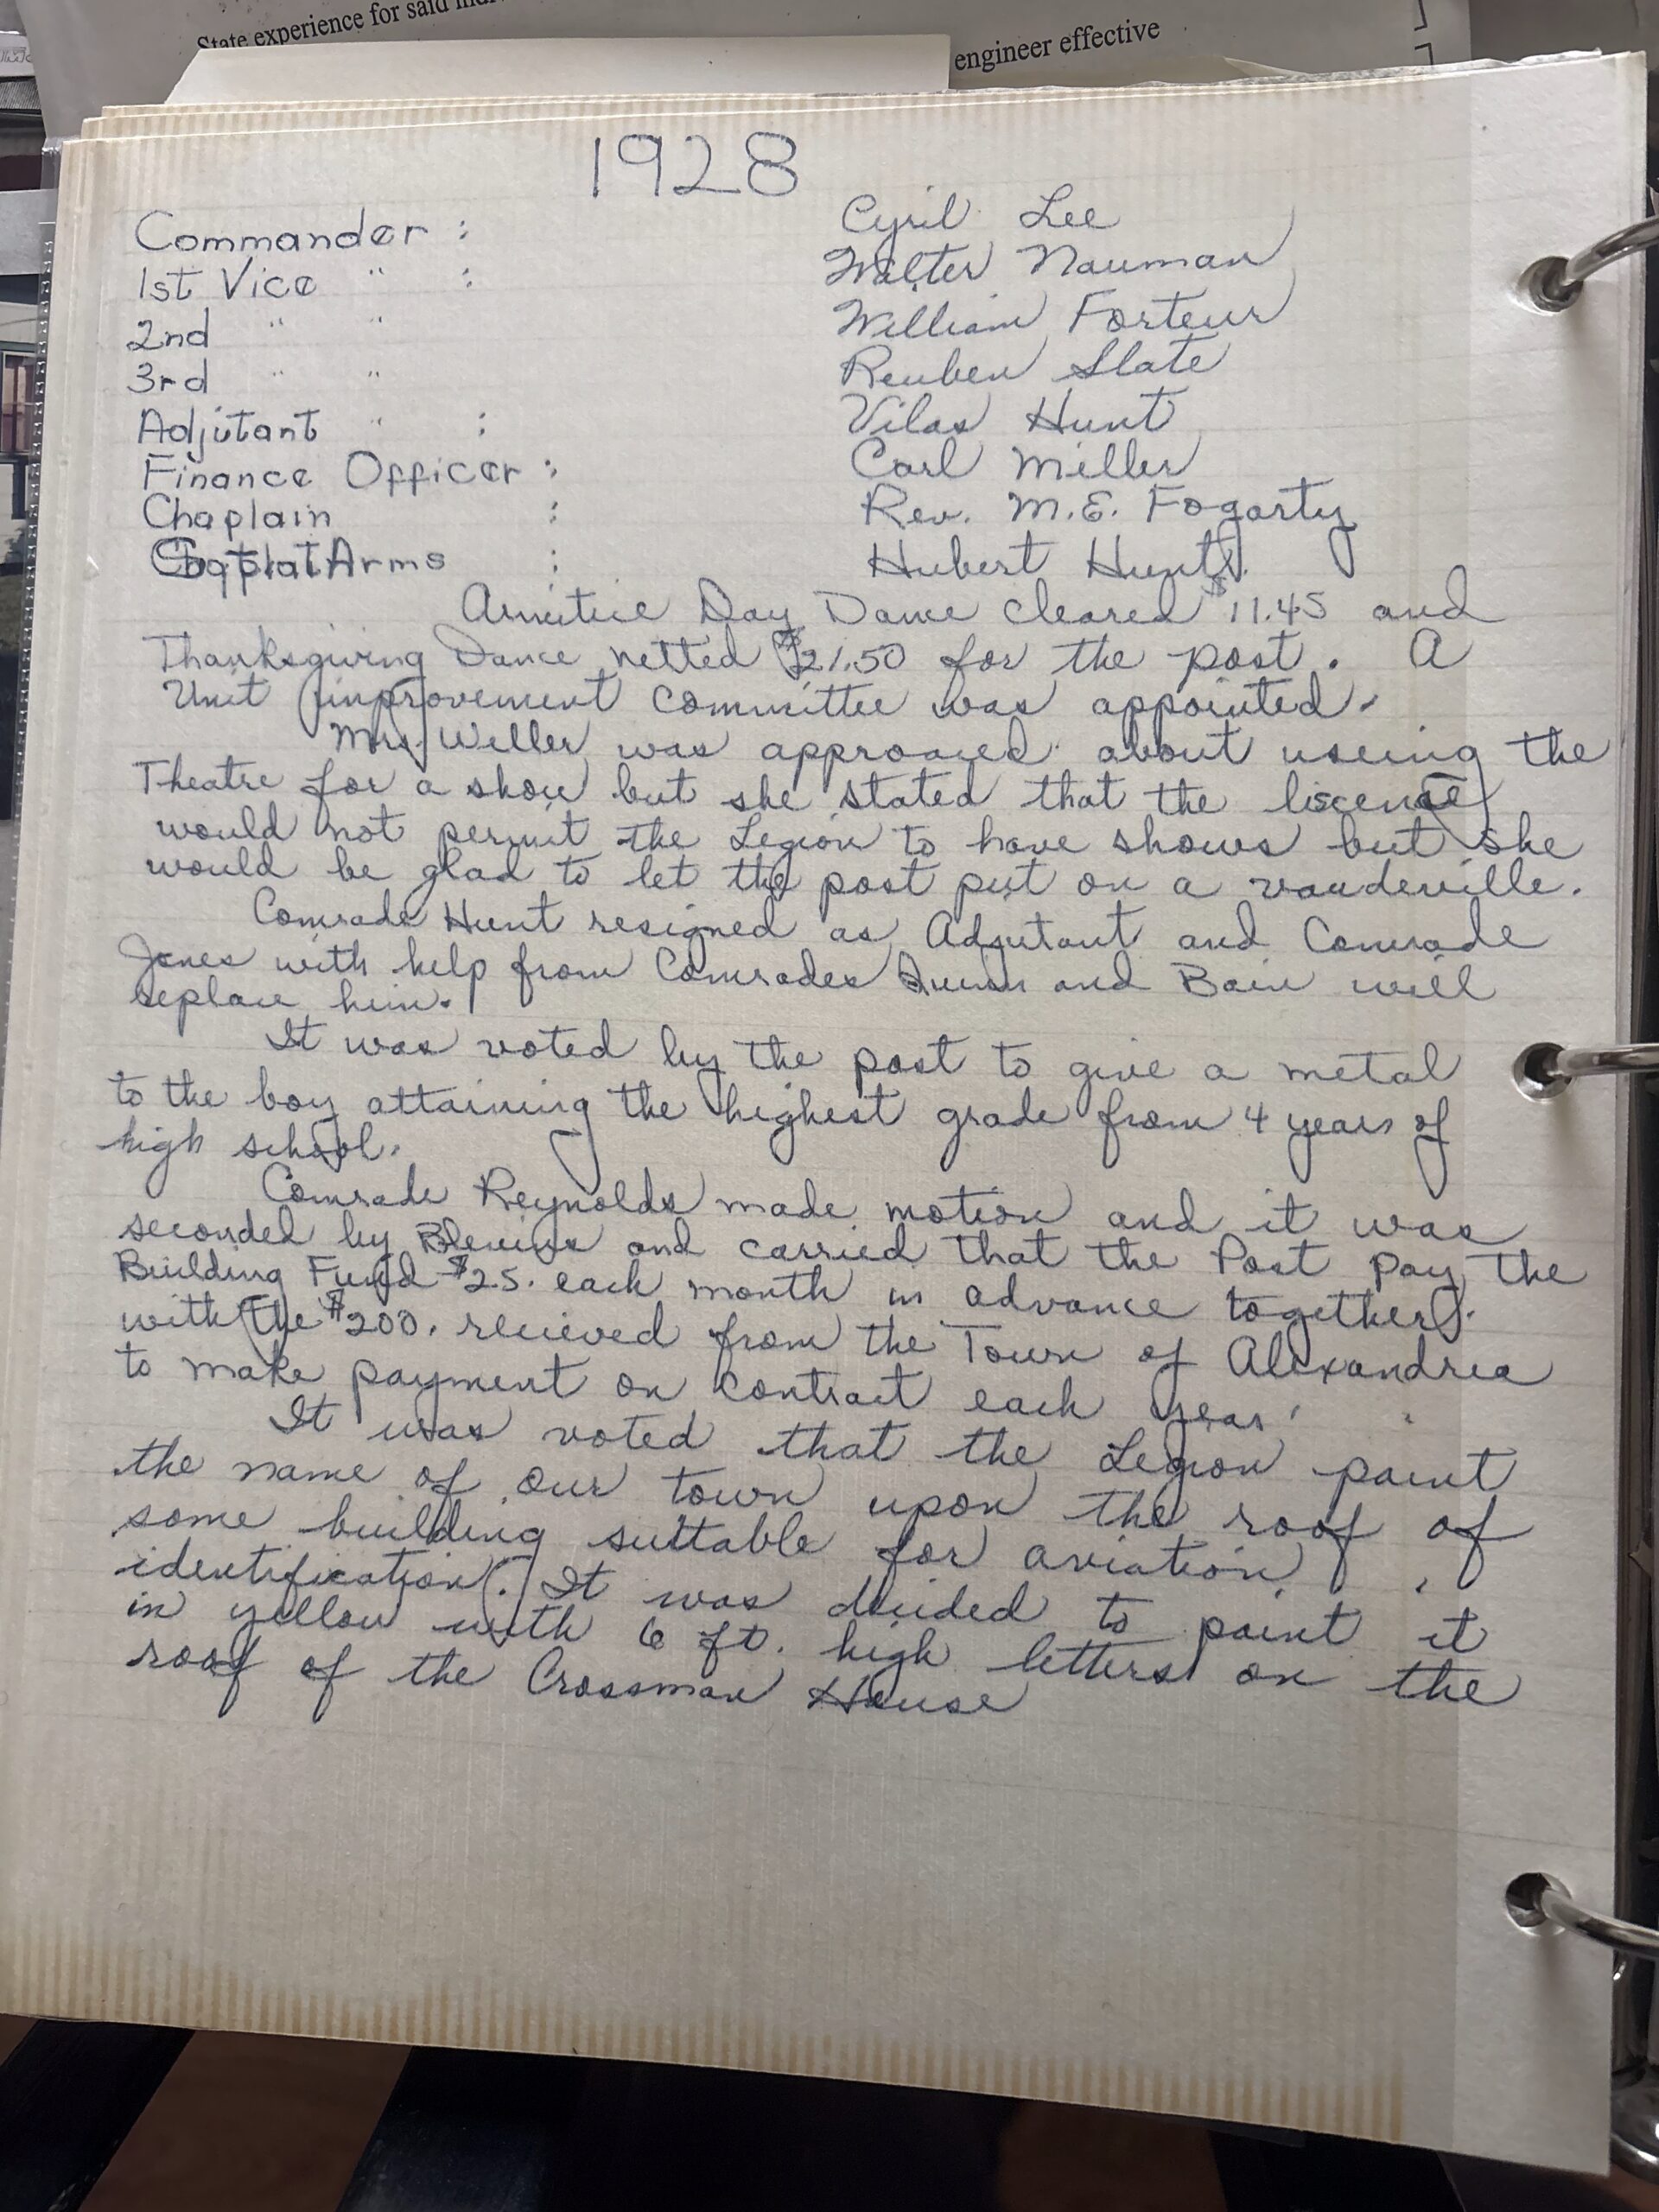 State experience for said
engineer effective
1928
Commander : Cyril Lee
1st Vice " : Walter Nauman
2nd " " William Forteur
3rd " " Reuben Slate
Adjutant " : Vilas Hunt
Finance Officer : Carl Miller
Chaplain : Rev. M.E. Fogarty
Sgt at Arms : Hubert Hunt.
Armistice Day Dance cleared $11.45 and
Thanksgiving Dance netted $21.50 for the post. A
Unit improvement committee was appointed.
Mrs. Weller was approaced about useing the
Theatre for a show but she stated that the liscense
would not permit the Legion to have shows but she
would be glad to let the post put on a vaudeville.
Comrade Hunt resigned as Adjutant and Comrade
Jones with help from Comrades and Bain will
replace him.
It was voted by the post to give a metal
to the boy attaining the highest grade from 4 years of
high school.
Comrade Reynolds made motion and it was
seconded by Blevins and carried that the Post pay the
Building Fund $25. each month in advance together
with the $200. recieved from the Town of Alexandrea
to make payment on contract each year.
It was voted that the Legion paint
the name of our town upon the roof of
some building suitable for aviation
identification. It was decided to paint it
in yellow with 6 ft. high letters on the
roof of the Crossman House